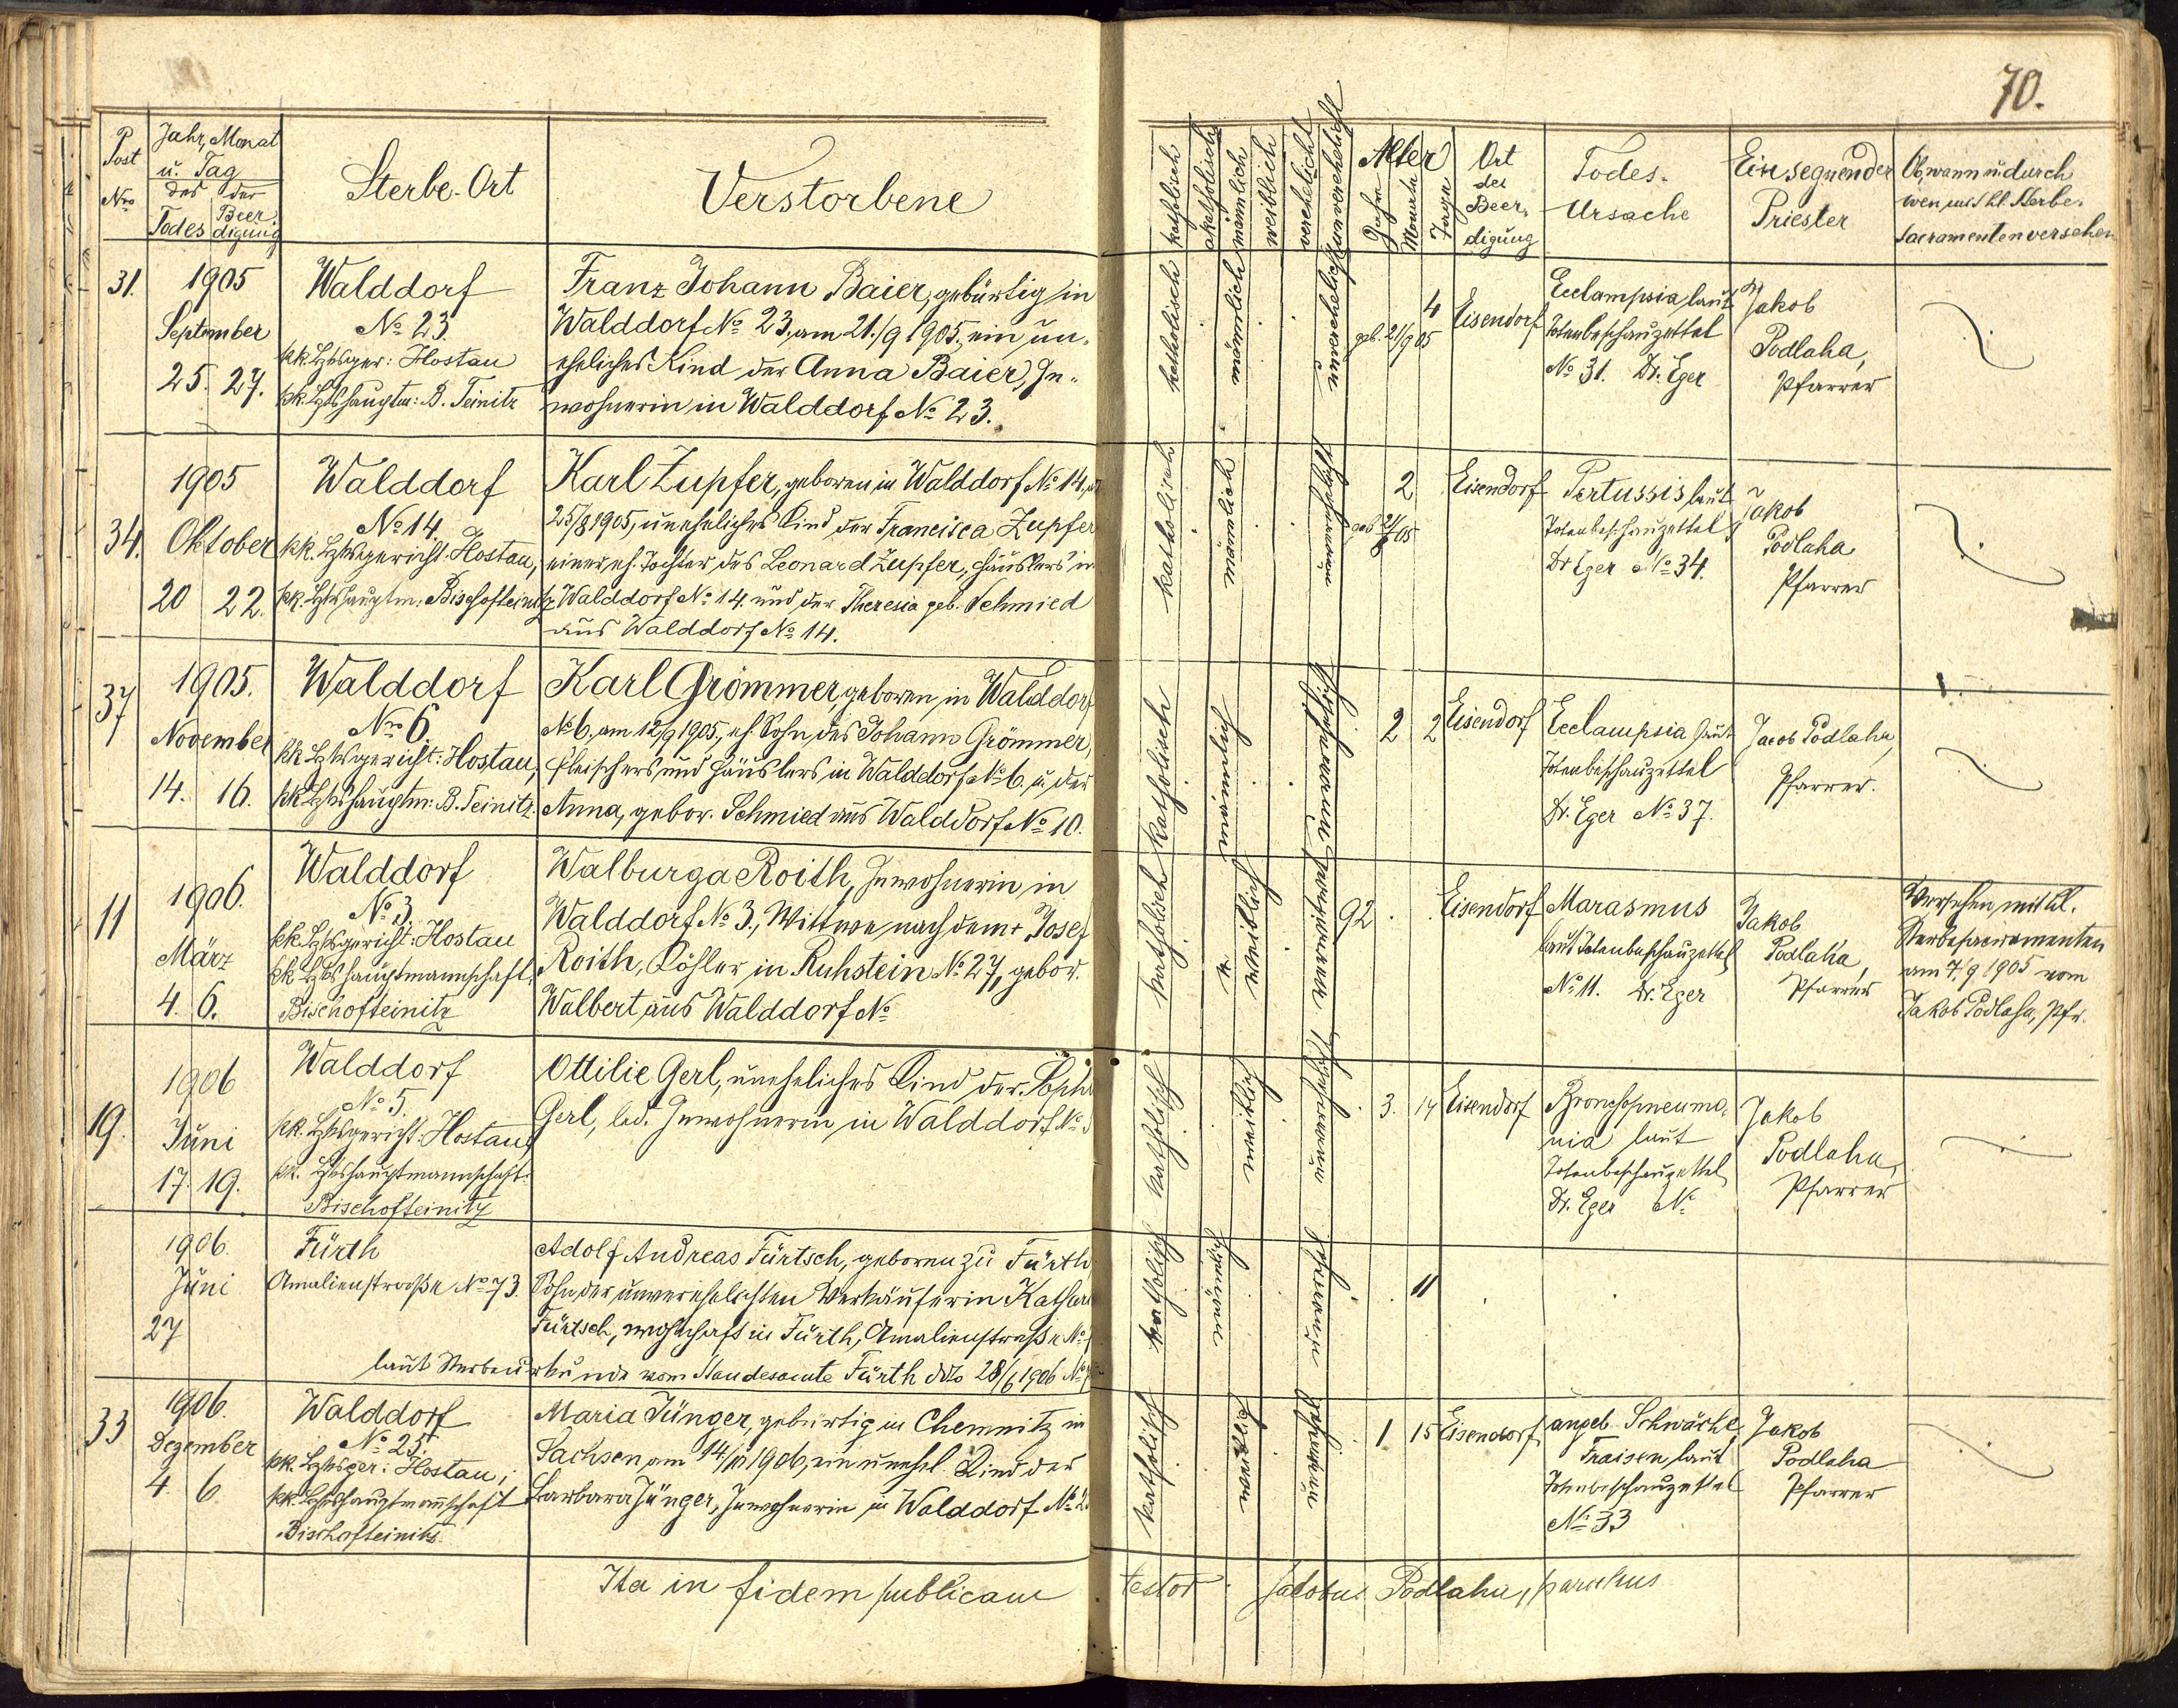 70.
Post Nro
Jahr, Monat
u. Tag
des der
Todes Beer digung
Sterbe-Ort
Verstorbene
katholisch
akatholisch
männlich
weiblich
verehelicht
unverehelicht
Alter
Jahre
Monate
Tage
Ort
der
Beer-
digung
Todes-
Ursache
Einsegnender
Priester
Ob, wann u. durch
wen mit hl. Sterbe-
sacramenten versehen
31.
1905
September
25. 27.
Walddorf
No 23.
kk. Bzksger: Hostau
kk. Bzkshauptm: B. Teinitz
Franz Johann Baier, gebürtig in
Walddorf No 23. am 21./9 1905, ein un-
eheliches Kind der Anna Baier, In-
wohnerin in Walddorf No 23.
katholisch
männlich
unverehelicht
4
geb. 21/9 05
Eisendorf
Ecclampsia laut
Totenbeschauzettel
No 31. Dr. Eger
Jakob
Podlaha,
Pfarrer
34.
1905
Oktober
20 22.
Walddorf
No 14.
kk. Bzksgericht: Hostau,
kk. Bzkshauptm: Bischofteinitz
Karl Zupfer, geboren in Walddorf No 14,
25/8 1905, uneheliches Kind der Francisca Zupfer
einer eh. Tochter des Leonard Zupfer, Häuslers in
Walddorf No 14. und der Theresia geb. Schmied
aus Walddorf No 14.
katholisch
männlich
unverehelicht
2
geb
05
Eisendorf
Pertussis laut
Totenbeschauzettel
Dr Eger No 34.
Jakob
Podlaha
Pfarrer
37
1905.
November
14. 16.
Walddorf
No 6.
kk. Bzksgericht: Hostau,
kk. Bzkshauptm: B. Teinitz.
Karl Grömmer, geboren in Walddorf
No 6. am 12/9 1905, eh. Sohn des Johann Grömmer,
Fleischers und Häuslers in Walddorf No 6. u. der
Anna, gebor. Schmied aus Walddorf No 10.
katholisch
männlich
unverehelicht
2 2
Eisendorf
Ecclampsia laut
Totenbeschauzettel
Dr. Eger No 37.
Jacob Podlaha,
Pfarrer.
11
1906.
März
4. 6.
Walddorf
No 3.
kk. Bzksgericht: Hostau
kk. Bzkshauptmannschaft:
Bischofteinitz
Walburga Roith, Inwohnerin in
Walddorf No 3., Wittwe nach dem + Josef
Roith, Köhler in Ruhstein No 27, gebor.
Walbert aus Walddorf No
katholisch
weiblich
verwitwet
92
Eisendorf
Marasmus
laut Totenbeschauzettel
No 11. Dr. Eger
Jakob
Podlaha,
Pfarrer
Versehen mit hl.
Sterbesacramenten
am 7./9 1905 vom
Jakob Podlaha, Pfr.
19.
1906
Juni
17. 19.
Walddorf
No 5.
kk. Bzksgericht: Hostau,
kk. Bzkshauptmannschaft:
Bischofteinitz
Ottilie Gerl, uneheliches Kind der
Gerl, led. Inwohnerin in Walddorf No
katholisch
weiblich
unverehelicht
3. 14
Eisendorf
Bronchopneumo-
nia laut
Totenbeschauzettel
Dr. Eger No
Jakob
Podlaha,
Pfarrer
1906.
Juni
27
Fürth
Amalienstrasse No 73.
Adolf Andreas Fürtsch, geboren zu Fürth
Sohn der unverehelichten Verkäuferin
Fürtsch, wohnhaft in Fürth, Amalienstraße No
laut Sterbeurkunde vom Standesamte Fürth ddto 28/6 1906 No
katholisch
männlich
unverehel
11
33
1906.
Dezember
4. 6
Walddorf
No 25.
kk. Bzksger: Hostau;
kk. Bzkshauptmannschaft
Bischofteinitz.
Maria Jünger, gebürtig in Chemnitz in
Sachsen am 14/10 1906, ein unehel. Kind der
Barbara Jünger, Inwohnerin in Walddorf No
katholisch
weiblich
unverehel
1 15
Eisendorf
angeb. Schwäche
Fraisen laut
Totenbeschauzettel
No 33
Jakob
Podlaha
Pfarrer
Ita in fidem publicam testor Jacobus Podlaha, parochus